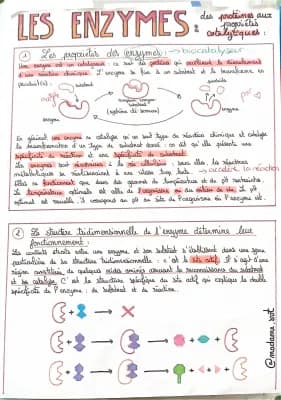 LES ENZYMES : des protéines aux propriétés catalytiques :
1 Les propriétés des enzymes : → biocatalyseur
Une enzyme est un catalyseur : ce sont des protéines qui accélèrent le déroulement
d'une réaction chimique. L'enzyme se fixe à un substrat et le transforme en
produit(s) :
substrat
enzyme
(système de serrure)
En général une enzyme ne catalyse qu'un seul type de réaction chimique et catalyse
la transformation d'un type de substrat donné : on dit qu'elle présente une
spécificité de réaction et une spécificité de substrat.
Les enzymes sont : sans elles, les réactions
métaboliques se réaliseraient à une vitesse trop lente. → accélère la réaction
Elles ne fonctionnent que dans des gammes de température et de pH restreintes.
La température optimale est celle de l'organisme ou du milieu de vie. Le pH
optimal est variable. Il correspond au pH du site de l'organisme où l'enzyme est.
2 La structure tridimensionnelle de l'enzyme détermine leur
fonctionnement :
Les contacts étroits entre une enzyme et son substrat s'établissent dans une zone
particulière de sa structure tridimensionnelle : c'est le site actif. Il s'agit d'une
région constituée de quelques acides aminés assurant la reconnaissance du substrat
et sa catalyse. C'est la structure spécifique du site actif qui explique la double
spécificité de l'enzyme : de substrat et de réaction.
@madame_svt